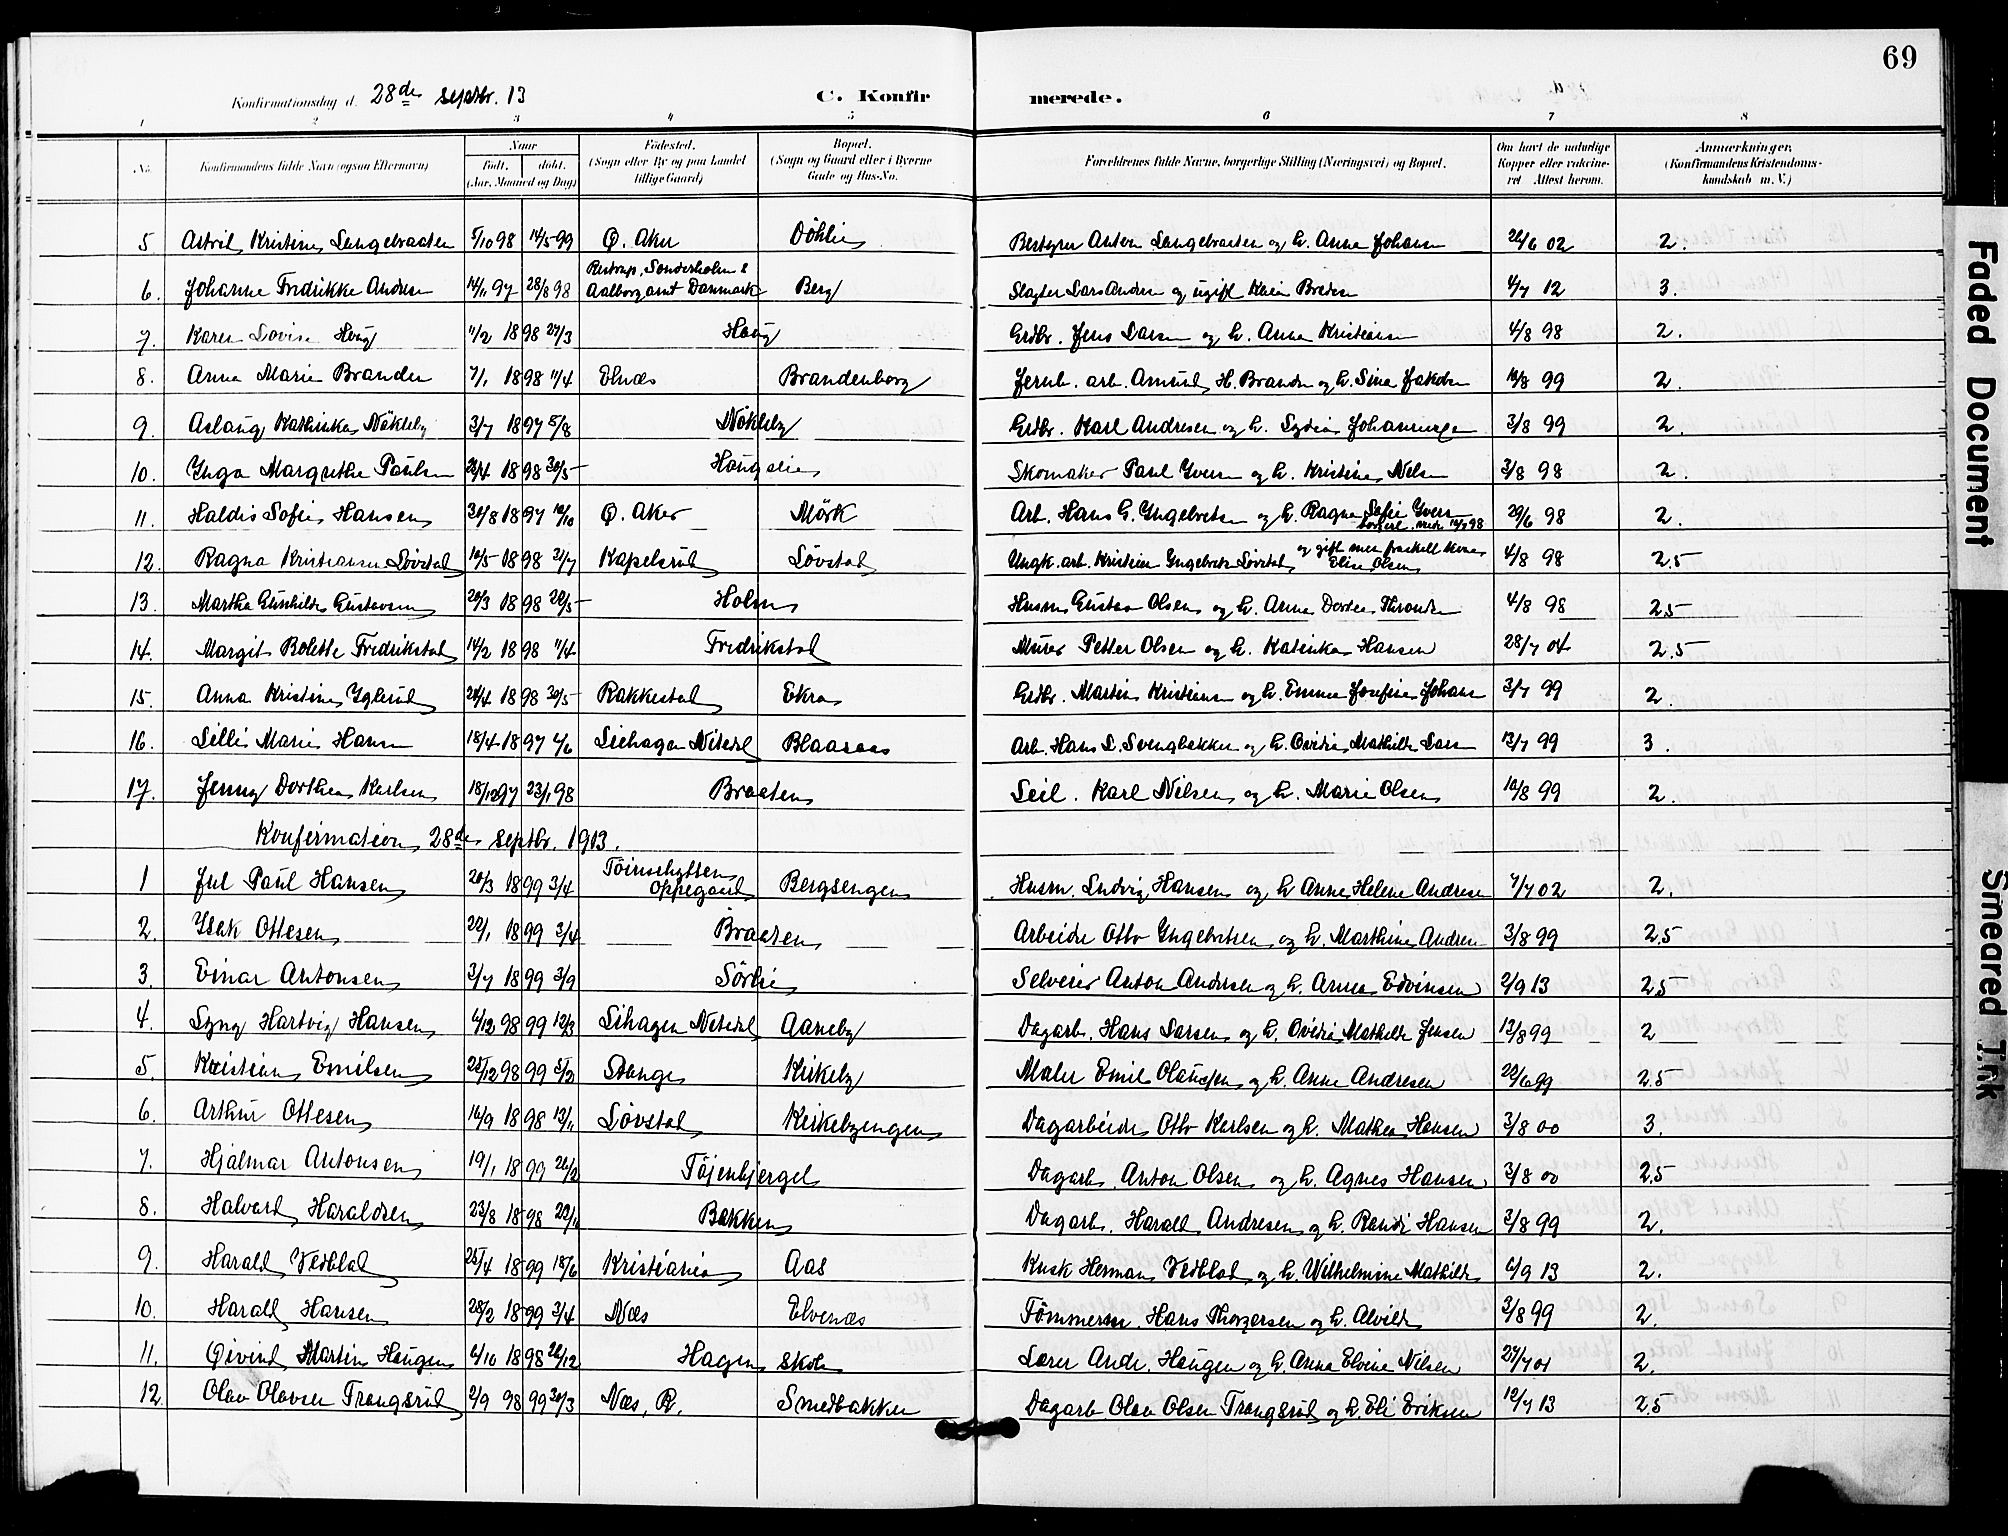 69
Konfirmationsdag d. 28de septbr. 13 C. Konfirmerede.
1 2 3 4 5 6 7 8
No. Konfirmandens fulde Navn (ogsaa Efternavn) Naar født. døbt. (Aar, Maaned og Dag) Fødested. (Sogn eller By og paa Landet tillige Gaard) Bopæl. (Sogn og Gaard eller i Byerne Gade og Hus-No. Forældrenes fulde Navne, borgerlige Stilling (Næringsvei) og Bopæl. Om havt de naturlige Kopper eller vaccineret Attest herom. Anmærkninger. (Konfirmandens Kristendomskundskab m. V.)
5 Astrid Kristine Langebraaten 5/10 98 14/5 99 Ø. Aker Döhlie Anton Langebraaten og h. Anna Johansen 26/6 02 2.
6. Johanne Fredrikke Andersen 14/11 97 28/8 98 Restrup, Sønderholm s Aalborg amt Danmark Berg Slagter Lars Andersen og ugift Karen 4/7 12 3.
7. Karen Lovise Haug 11/2 1898 27/3 Haug Grdbr. Jens Larsen og h. Anna Kristiansen 4/8 98 2.
8. Anna Marie Branden 7/1 1898 11/4 Elnæs Brandenborg Jernb. arb. Amund H. Branden og h. Sina Jakobsen 10/8 99 2.
9. Aslaug Kathinka Nökleby 3/7 1897 5/8 Nökleby Grdbr. Karl Andresen og h. Lydia 3/8 99 2.
10. Inga Margrethe Paulsen 26/4 1898 30/5 Haugslie Skomaker Paul Iversen og h. Kristine Nilsen 3/8 98 2.
11. Haldis Sofie Hansen 30/8 1897 10/10 Ø. Aker Mörk Arb. Hans G. Yngebretsen og h. Ragna Sofie Iversen 29/6 98 2.
12. Ragna Kristiansen Løvstad 10/5 1898 31/7 Kapelsrud Løvstad Ungk. arb. Kristian Yngebretsen Løvstad og gift men fraskilt kone Elise Olsen 4/8 98 2.5
13. Martha Gunhilde Gustavsen 20/3 1898 20/5 Holm Husm. Gustav Olsen og h. Anna Dortea Throndsen 4/8 98 2.5
14. Margit Bolette Fredrikstad 14/2 1898 11/4 Fredrikstad Murer Petter Olsen og h. Katinka Hansen 28/7 04 2.5
15. Anna Kristine Yglerud 24/4 1898 30/5 Rakkestad Ekra Grdbr. Martin Kristiansen og h. Emma Josefine Johansen 3/7 99 2.
16. Lilli Marie Hansen 18/4 1897 4/6 Liehagen Nitedal Blaasaas Arb. Hans L. Svengbakken og h. Ovidia Mathilde Larsen 13/7 99 3.
17. Jenny Dorthea Karlsen 18/12 97 23/1 98 Braaten Leil. Karl Nilsen og h. Marie Olsen 10/8 99 2.
Konfirmation 28de septbr. 1913.
1 Jul Paul Hansen 20/3 1899 3/4 Tömsehytten Oppegaard Bergsengen Husm. Ludvig Hansen og h. Anne Helene Andresen 7/7 02 2.
2. Isak Ottesen 22/1 1899 3/4 Braaten Arbeider Otto Yngebretsen og h. Marthine Andresen 3/8 99 2.5
3. Einar Antonsen 3/7 1899 3/9 Sörlie Selveier Anton Andersen og h. Anna Edvinsen 2/9 13 2.5
4. Lyng Hartvig Hansen 6/12 98 99 12/3 Lihagen Nitedal Aaneby Dagarb. Hans Larsen og h. Ovidia Mathilde Jensen 13/8 99 2
5. Kristian Emilsen 25/12 98 99 5/2 Stange Kirkeby Maler Emil Olaussen og h. Anne Andresen 29/6 99 2.5
6. Arthur Ottesen 16/9 1898 13/11 Løvstad Kirkebyengen Dagarbeider Otto Karlsen og h. Mathea Hansen 3/8 00 3.
7. Hjalmar Antonsen 19/1 1899 26/2 Töjenbjerget Dagarb. Anton Olsen og h. Agnes Hansen 3/8 00 2.5
8. Halvard Haraldsen 23/8 1898 Bakken Dagarb. Harald Andresen og h. Randi Hansen 3/8 99 2.
9. Harald Vedblad 25/4 1899 18/6 Kristiania Aas Kusk Herman Vedblad og h. Wilhelmine Mathilde 6/9 13 2.
10. Harald Hansen 28/2 1899 3/4 Næs Elvenæs Tömmerm. Hans Thorgersen og h. Alvilde 3/8 99 2.
11. Øivind Martin Haugen 6/10 1898 26/12 Hagen skole Lærer Andr. Haugen og h. Anna Elvine Nilsen 27/7 01 2.
12. Olav Olavsen Trangsrud 2/9 98 99 30/3 Næs, R. Smedbakken Dagarb Olav Olsen Trangsrud og h. Eli Eriksen 12/7 13 2.5
Faded Document
Smeared Ink